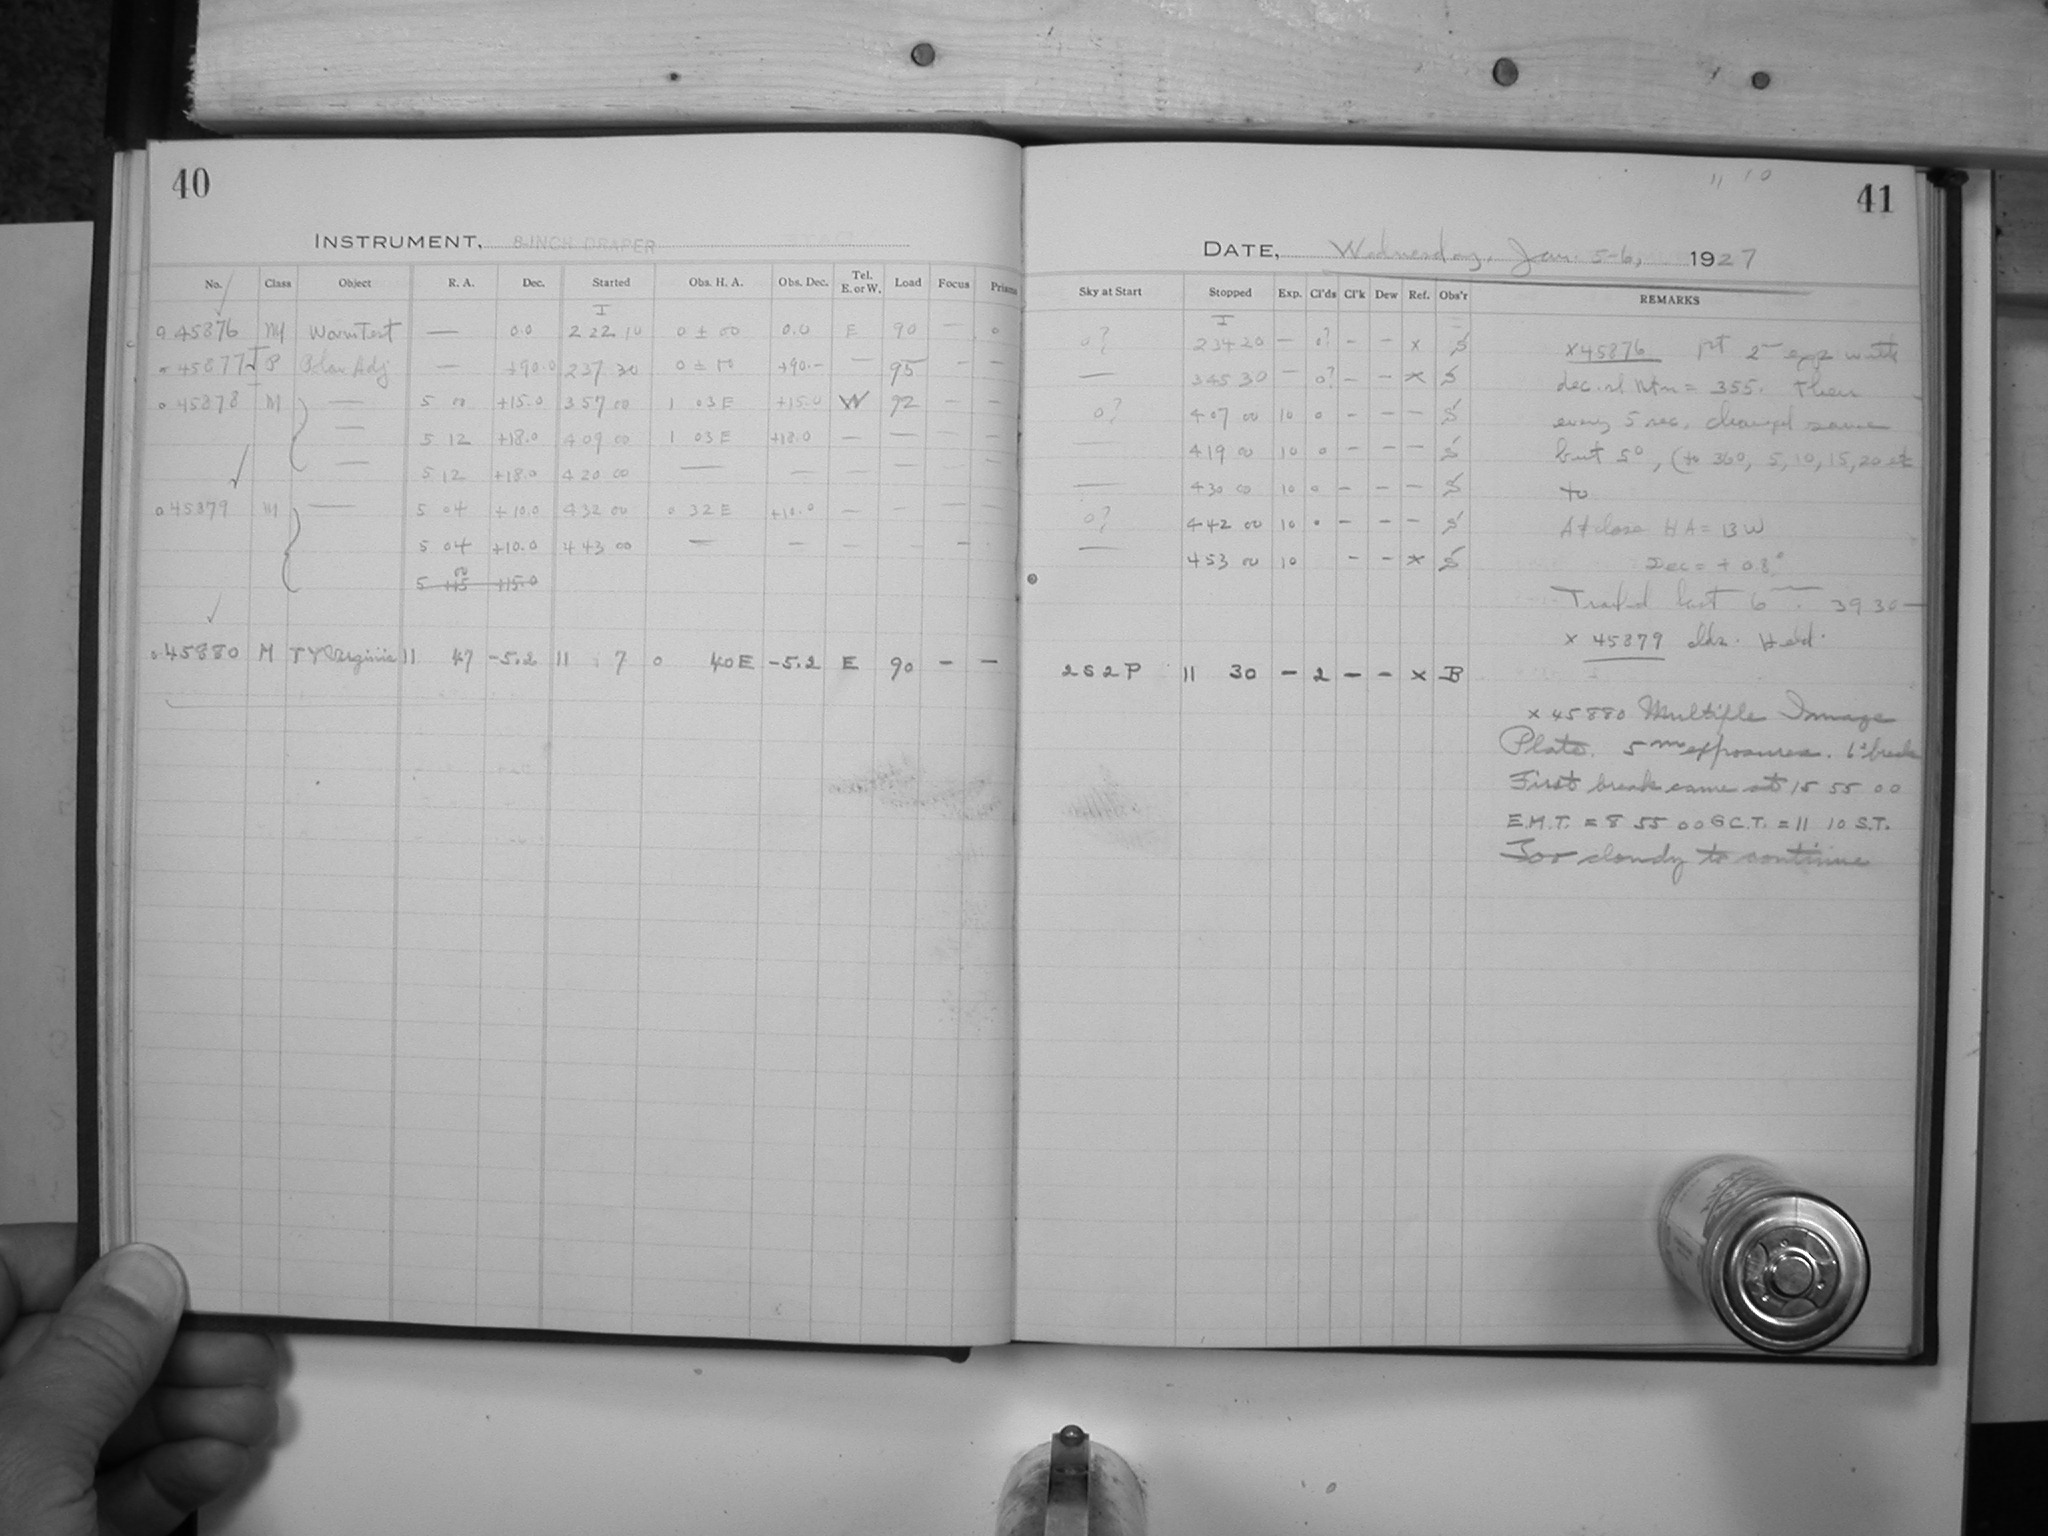 40
INSTRUMENT, 8-INCH DRAPER
No. Class Object R. A. Dec. Started Obs. H. A. Obs. Dec. Tel. E. or W. Load Focus Prisms
I
45876 M — 0.0 2 22 10 0 ± 00 0.0 E 90 — 0
45877 P Polar Adj — +90.0 2 37 30 0 ± +90.— — 95 — —
45878 M — 5 00 +15.0 3 57 00 1 03 E +15.0 W 92 — —
— 5 12 +18.0 4 09 00 1 03 E +18.0 — — — —
— 5 12 +18.0 4 20 00 — — — — — —
45879 M — 5 04 +10.0 4 32 00 0 32 E +10.0 — — — —
5 04 +10.0 4 43 00 — — — — —
00
5 +15.0
45880 M Virginis 11 47 -5.2 11 7 0 40 E -5.2 E 90 — —
11 10
41
DATE, Wednesday, Jan. 5-6, 1927
Sky at Start Stopped Exp. Cl'ds Cl'k Dew Ref. Obs'r REMARKS
I
0? 2 34 20 — 0? — — x S
— 3 45 30 — 0? — — x S
0? 4 07 00 10 0 — — — S
— 4 19 00 10 0 — — — S
— 4 30 00 10 0 — — — S
0? 4 42 00 10 0 — — — S
— 4 53 00 10 — — x S
2 S 2 P 11 30 — 2 — — x B
x 45876 2 exp with
dec. = 355. Then
every 5 sec. changed same
but 5°, (to 360, 5, 10, 15, 20 etc
to
At close H A = 13 W
Dec = + 0.8°
Trail'd last 6 m. 39 30 —
x 45879 clds. Held.
x 45880 Multiple Image
Plate. 5 m exposures. 6 s break
First break came at 15 55 00
E.M.T. = 8 55 00 G.C.T. = 11 10 S.T.
Too cloudy to continue